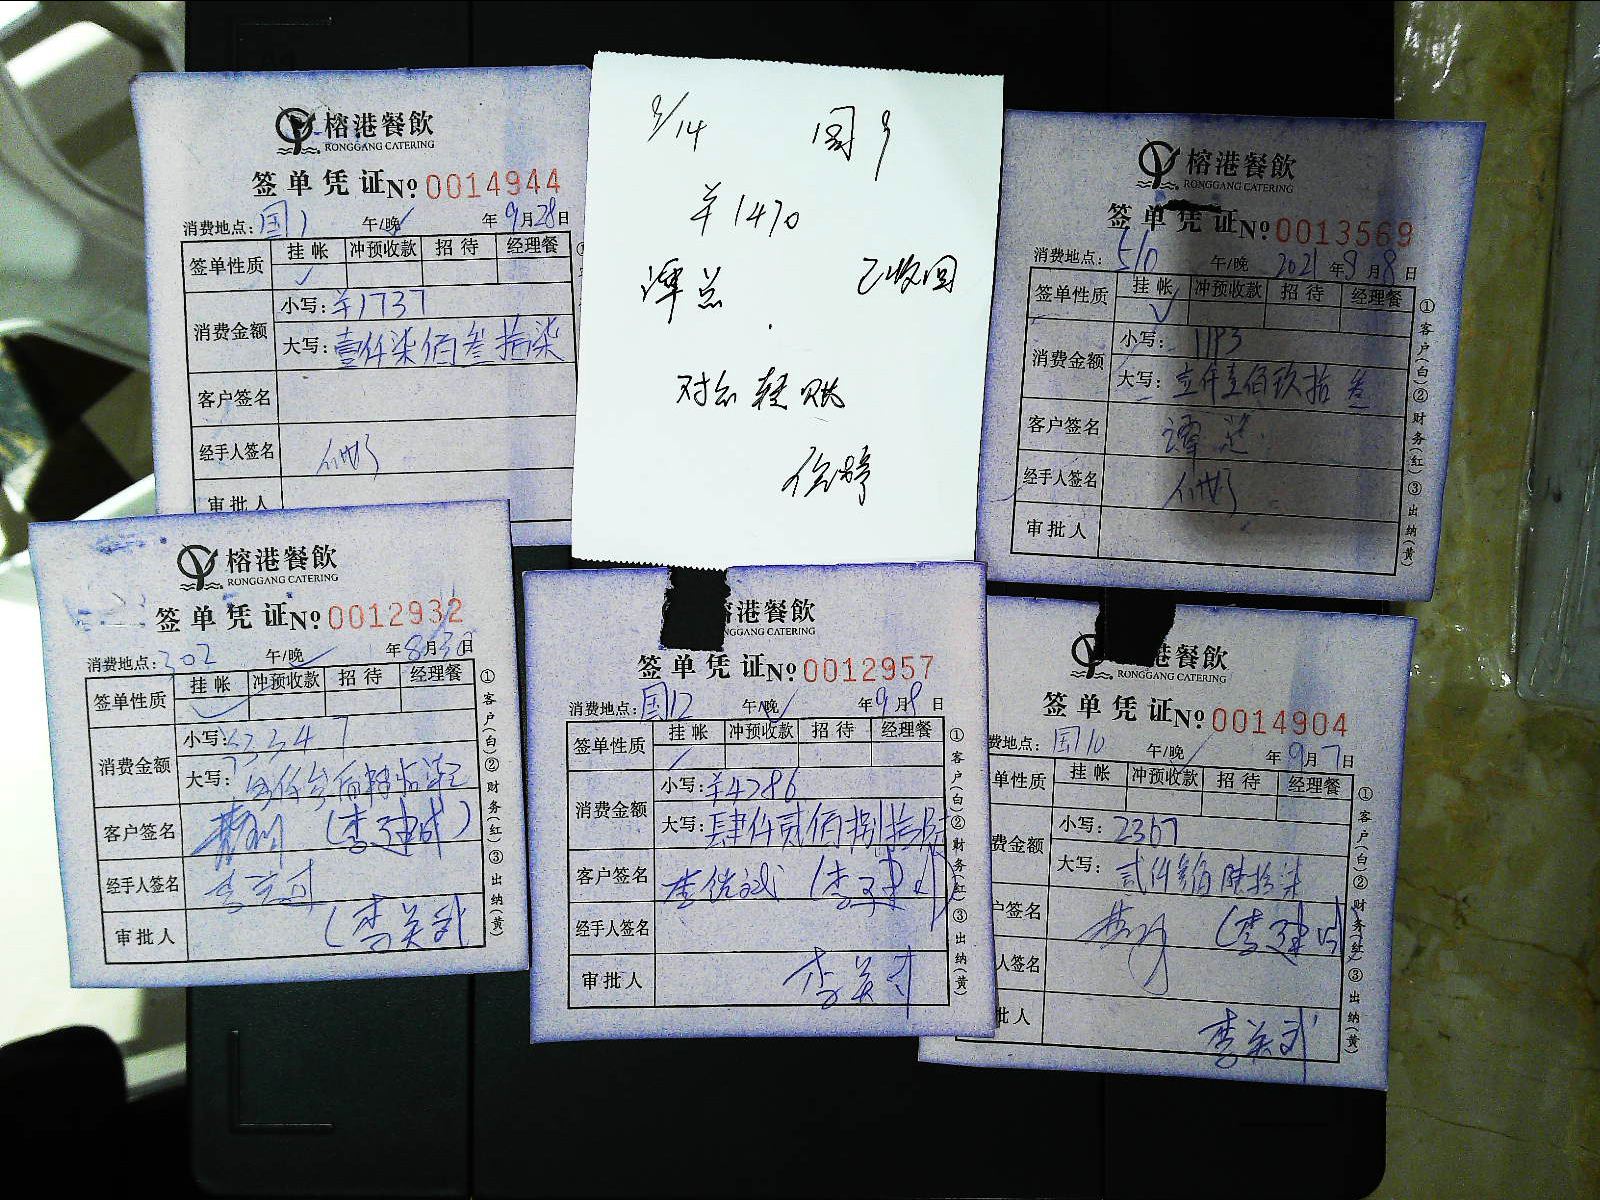 榕港餐飲
RONGGANG CATERING
签单凭证 No 0014944
消费地点: 国1 午/晚 年 9月28日
签单性质 挂帐 冲预收款 招待 经理餐
消费金额
小写: ¥1737
大写: 壹仟柒佰叁拾柒
客户签名
经手人签名
审批人
9/14 国9
¥1470
谭总 已收回
榕港餐飲
RONGGANG CATERING
签单凭证 No 0013569
消费地点: 510 午/晚 2021年9月8日
签单性质 挂帐 冲预收款 招待 经理餐
消费金额
小写: 1193
大写: 壹仟壹佰玖拾叁
客户签名 谭总
经手人签名
审批人
①客户(白)②财务(红)③出纳(黄)
榕港餐飲
RONGGANG CATERING
签单凭证 No 0012932
消费地点: 302 午/晚 年 8月30日
签单性质 挂帐 冲预收款 招待 经理餐
消费金额
小写:
大写:
客户签名 (李建成)
经手人签名
审批人 (李关武
①客户(白)②财务(红)③出纳(黄)
港餐飲
NGGANG CATERING
签单凭证 No 0012957
消费地点: 国12 午/晚 年9月8日
签单性质 挂帐 冲预收款 招待 经理餐
消费金额
小写: ¥4286
大写: 肆仟贰佰捌拾陆
客户签名
经手人签名
审批人 李关武
①客户(白)②财务(红)③出纳(黄)
港餐飲
RONGGANG CATERING
签单凭证 No 0014904
费地点: 国10 午/晚 年9月7日
单性质 挂帐 冲预收款 招待 经理餐
费金额
小写: 2367
大写: 贰仟叁佰陆拾柒
户签名 (李建成
人签名
批人 李关武
①客户(白)②财务(红)③出纳(黄)